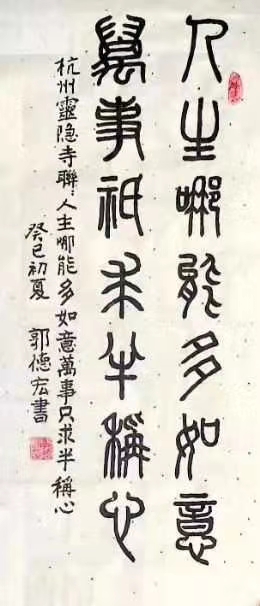 人生哪能多如意
萬事祇求半稱心
杭州靈隐寺聯：人生哪能多如意萬事只求半稱心
癸巳初夏 郭德宏書